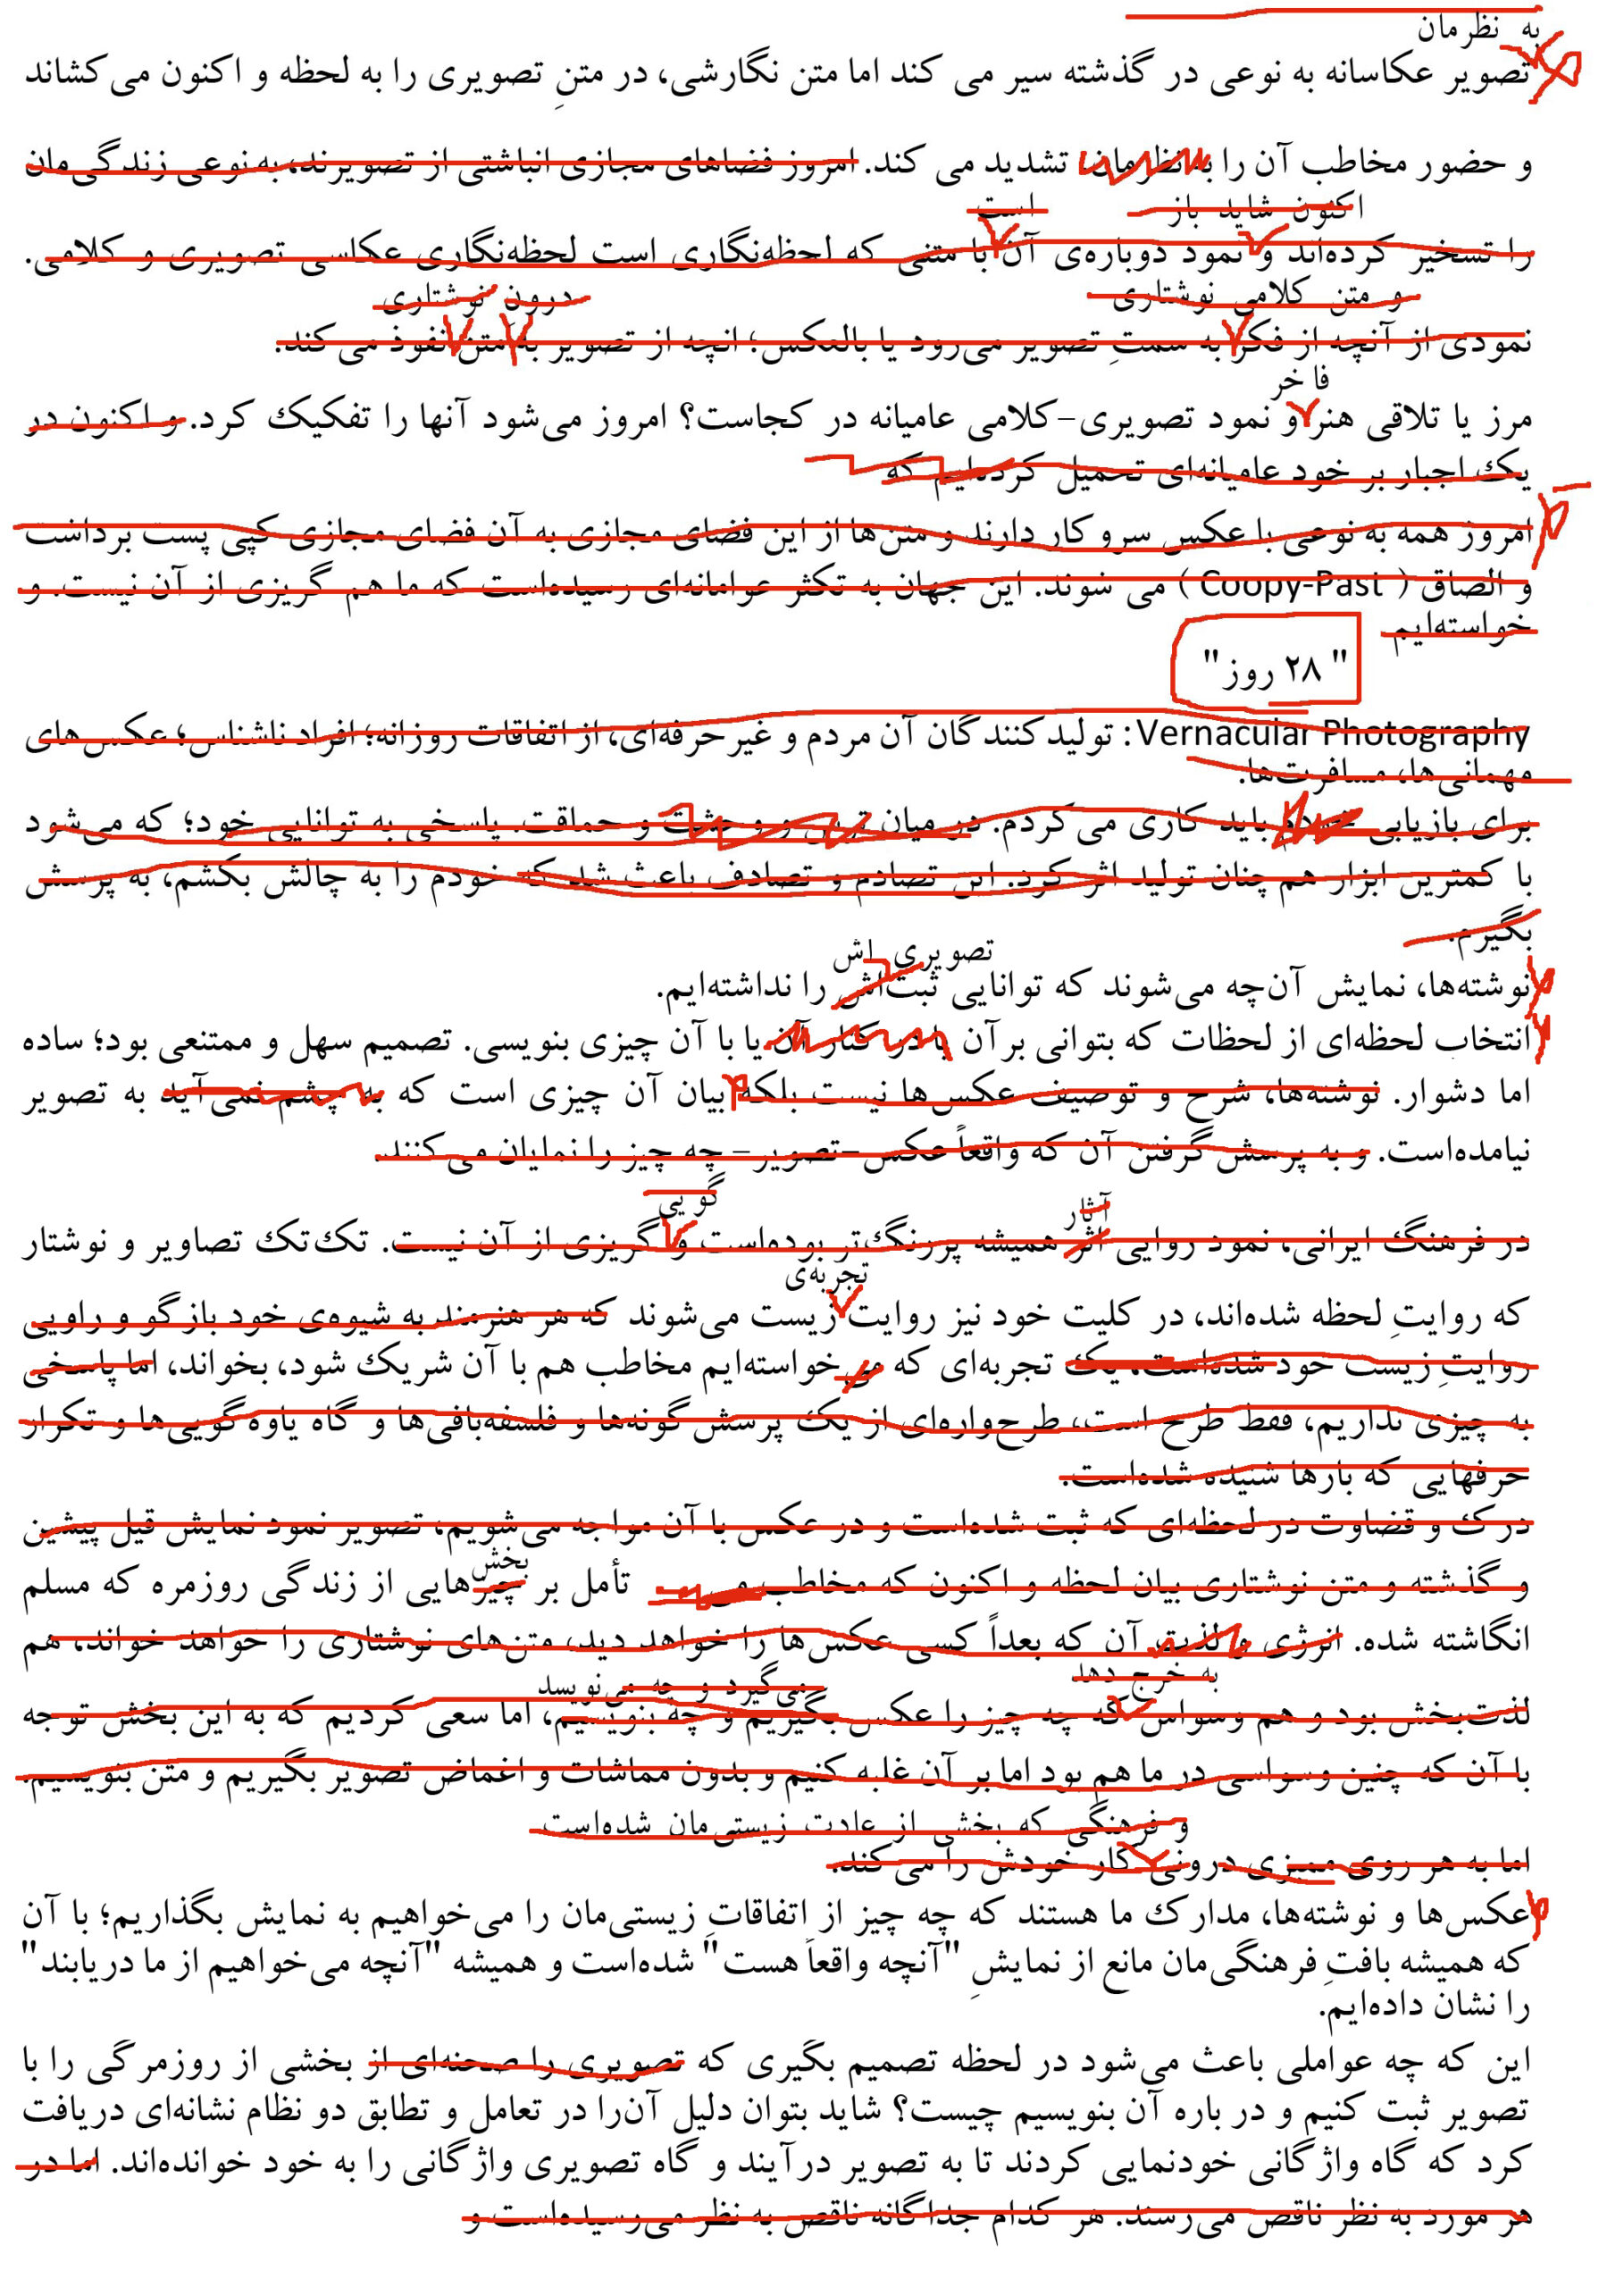 به نظرمان
تصویر عکاسانه به نوعی در گذشته سیر می کند اما متن نگارشی، در متنِ تصویری را به لحظه و اکنون می‌کشاند
و حضور مخاطب آن را به نظرمان، تشدید می کند. امروز فضاهای مجازی انباشتی از تصویرند، به نوعی زندگی‌مان
اکنون شاید باز است
را تسخیر کرده‌اند و نمود دوباره‌ی آن با متنی که لحظه‌نگاری است لحظه‌نگاری عکاسی تصویری و کلامی.
و متن کلامی نوشتاری درون نوشتاری
نمودی از آنچه از فکر به سمتِ تصویر می‌رود یا بالعکس؛ آنچه از تصویر به متن نفوذ می کند.
فاخر
مرز یا تلاقی هنر و نمود تصویری-کلامی عامیانه در کجاست؟ امروز می‌شود آنها را تفکیک کرد. و اکنون در
یک اجبار بر خود عامیانه‌ای تحمیل کرده‌ایم که
امروز همه به نوعی با عکس سر و کار دارند و متن‌ها از این فضای مجازی به آن فضای مجازی کپی پست برداشت
و الصاق ( Coopy-Past ) می شوند. این جهان به تکثر عوامانه‌ای رسیده‌است که ما هم گریزی از آن نیست. و
خواسته‌ایم
" ۲۸ روز"
Vernacular Photography: تولیدکنندگان آن مردم و غیرحرفه‌ای، از اتفاقات روزانه؛ افراد ناشناس؛ عکس‌های
مهمانی‌ها، مسافرت‌ها.
برای بازیابی خودم باید کاری می‌کردم. در میان ترس و وحشت و حماقت. پاسخی به توانایی خود؛ که می‌شود
با کمترین ابزار هم‌چنان تولید اثر کرد. این تصادم و تصادف باعث شد که خودم را به چالش بکشم، به پرسش
بگیرم.
تصویری اش
نوشته‌ها، نمایش آن‌چه می‌شوند که توانایی ثبت‌اش را نداشته‌ایم.
انتخاب لحظه‌ای از لحظات که بتوانی بر آن یا در کنار آن یا با آن چیزی بنویسی. تصمیم سهل و ممتنعی بود؛ ساده
اما دشوار. نوشته‌ها، شرح و توصیف عکس‌ها نیست بلکه بیان آن چیزی است که به چشم نمی‌آید به تصویر
نیامده‌است. و به پرسش گرفتن آن که واقعاً عکس-تصویر- چه چیز را نمایان می‌کنند.
آثار گویی
در فرهنگ ایرانی، نمود روایی اثر همیشه پررنگ‌تر بوده‌است و گریزی از آن نیست. تک‌تک تصاویر و نوشتار
تجربه‌ی
که روایتِ لحظه شده‌اند، در کلیت خود نیز روایت زیست می‌شوند که هر هنرمند به شیوه‌ی خود بازگو و راویی
روایتِ زیست خود شده‌است، یک تجربه‌ای که می خواسته‌ایم مخاطب هم با آن شریک شود، بخواند، اما پاسخی
به چیزی نداریم، فقط طرح است، طرح‌واره‌ای از یک پرسش گونه‌ها و فلسفه‌بافی‌ها و گاه یاوه‌گویی‌ها و تکرار
حرفهایی که بارها شنیده شده‌است.
درک و قضاوت در لحظه‌ای که ثبت شده‌است و در عکس با آن مواجه می‌شویم، تصویر نمود نمایش قبل پیشین
بخش
و گذشته و متن نوشتاری بیان لحظه و اکنون که مخاطب تأمل بر چیزهایی از زندگی روزمره که مسلم
انگاشته شده. انرژی و لذت آن که بعداً کسی عکس‌ها را خواهد دید، متن‌های نوشتاری را خواهد خواند، هم
به خرج دهد می‌گیرد و چه می‌نویسد
لذت‌بخش بود و هم وسواس که چه چیز را عکس بگیریم و چه بنویسیم، اما سعی کردیم که به این بخش توجه
با آن که چنین وسواسی در ما هم بود اما بر آن غلبه کنیم و بدون مماشات و اغماض تصویر بگیریم و متن بنویسیم.
و فرهنگی که بخشی از عادت زیستی‌مان شده‌است
اما به هر روی ممیزی درونی کار خودش را می‌کند.
عکس‌ها و نوشته‌ها، مدارک ما هستند که چه چیز از اتفاقاتِ زیستی‌مان را می‌خواهیم به نمایش بگذاریم؛ با آن
که همیشه بافتِ فرهنگی‌مان مانع از نمایشِ "آنچه واقعاً هست" شده‌است و همیشه "آنچه می‌خواهیم از ما دریابند"
را نشان داده‌ایم.
این که چه عواملی باعث می‌شود در لحظه تصمیم بگیری که تصویری را صحنه‌ای از بخشی از روزمرگی را با
تصویر ثبت کنیم و در باره آن بنویسیم چیست؟ شاید بتوان دلیل آن‌را در تعامل و تطابق دو نظام نشانه‌ای دریافت
کرد که گاه واژگانی خودنمایی کردند تا به تصویر درآیند و گاه تصویری واژگانی را به خود خوانده‌اند. اما در
هر مورد به نظر ناقص می‌رسند. هر کدام جداگانه ناقص به نظر می‌رسیده‌است و